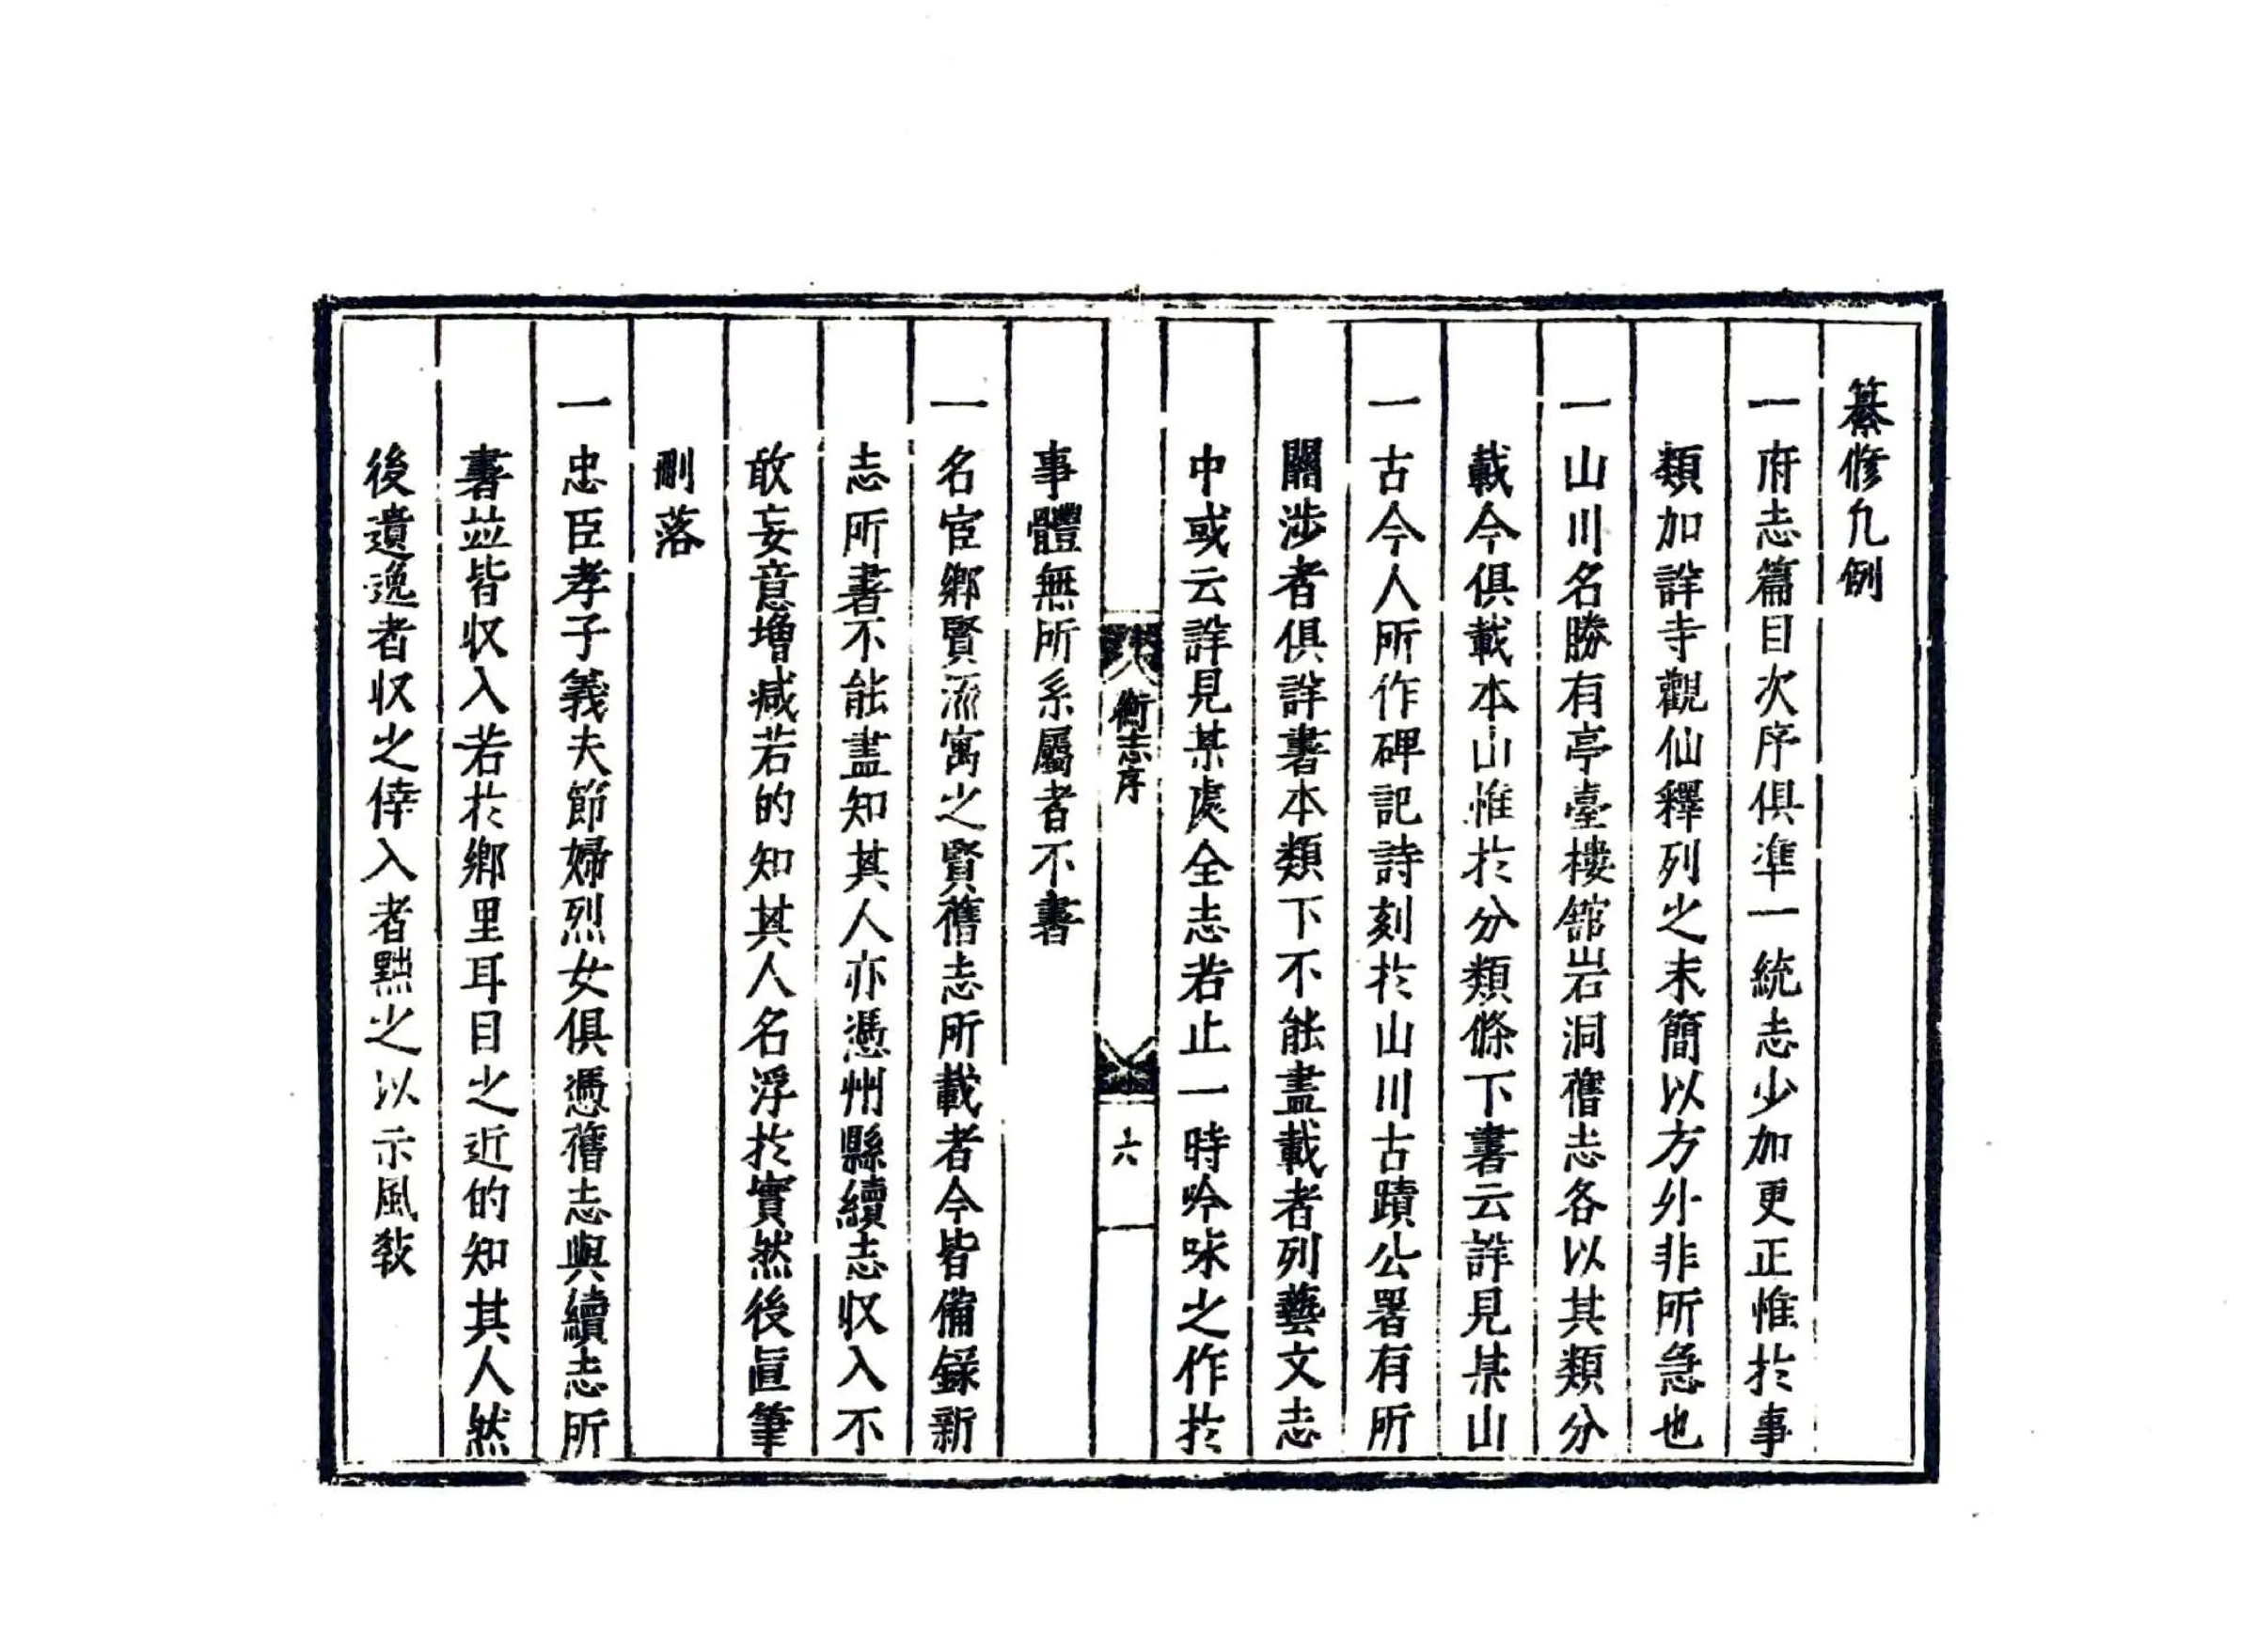 纂修凢例
一府志篇目次序俱準一統志少加更正惟於事
類加詳寺觀仙釋列之末簡以方外非所急也
一山川名勝有亭臺樓舘岩洞舊志各以其類分
載今俱載本山惟於分類條下書云詳見某山
一古今人所作碑記詩刻於山川古蹟公署有所
關涉者俱詳書本類下不能盡載者列藝文志
中或云詳見某處全志若止一時吟咏之作於
事體無所系屬者不書
衡志序
六
一名宦鄉賢流寓之賢舊志所載者今皆備錄新
志所書不能盡知其人亦憑州縣續志収入不
敢妄意增减若的知其人名浮於實然後直筆
刪落
一忠臣孝子義夫節婦烈女俱憑舊志與續志所
書並皆収入若於鄉里耳目之近的知其人然
後遺逸者収之倖入者黜之以示風教